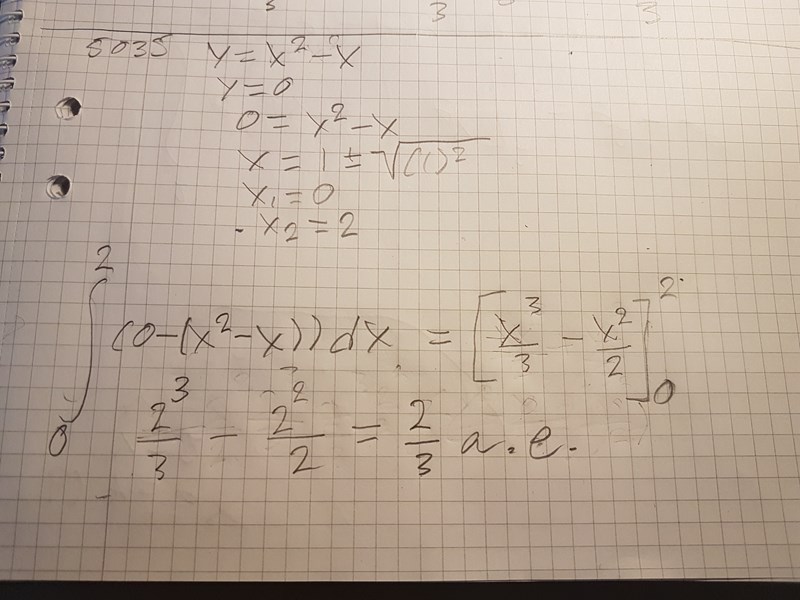 3 3 3
5035 y = x² - x
y = 0
0 = x² - x
x = 1 ± √(1)²
x₁ = 0
x₂ = 2
∫₀² (0-(x²-x))dx = [x³/3 - x²/2]₀²
2³/3 - 2²/2 = 2/3 a.e.